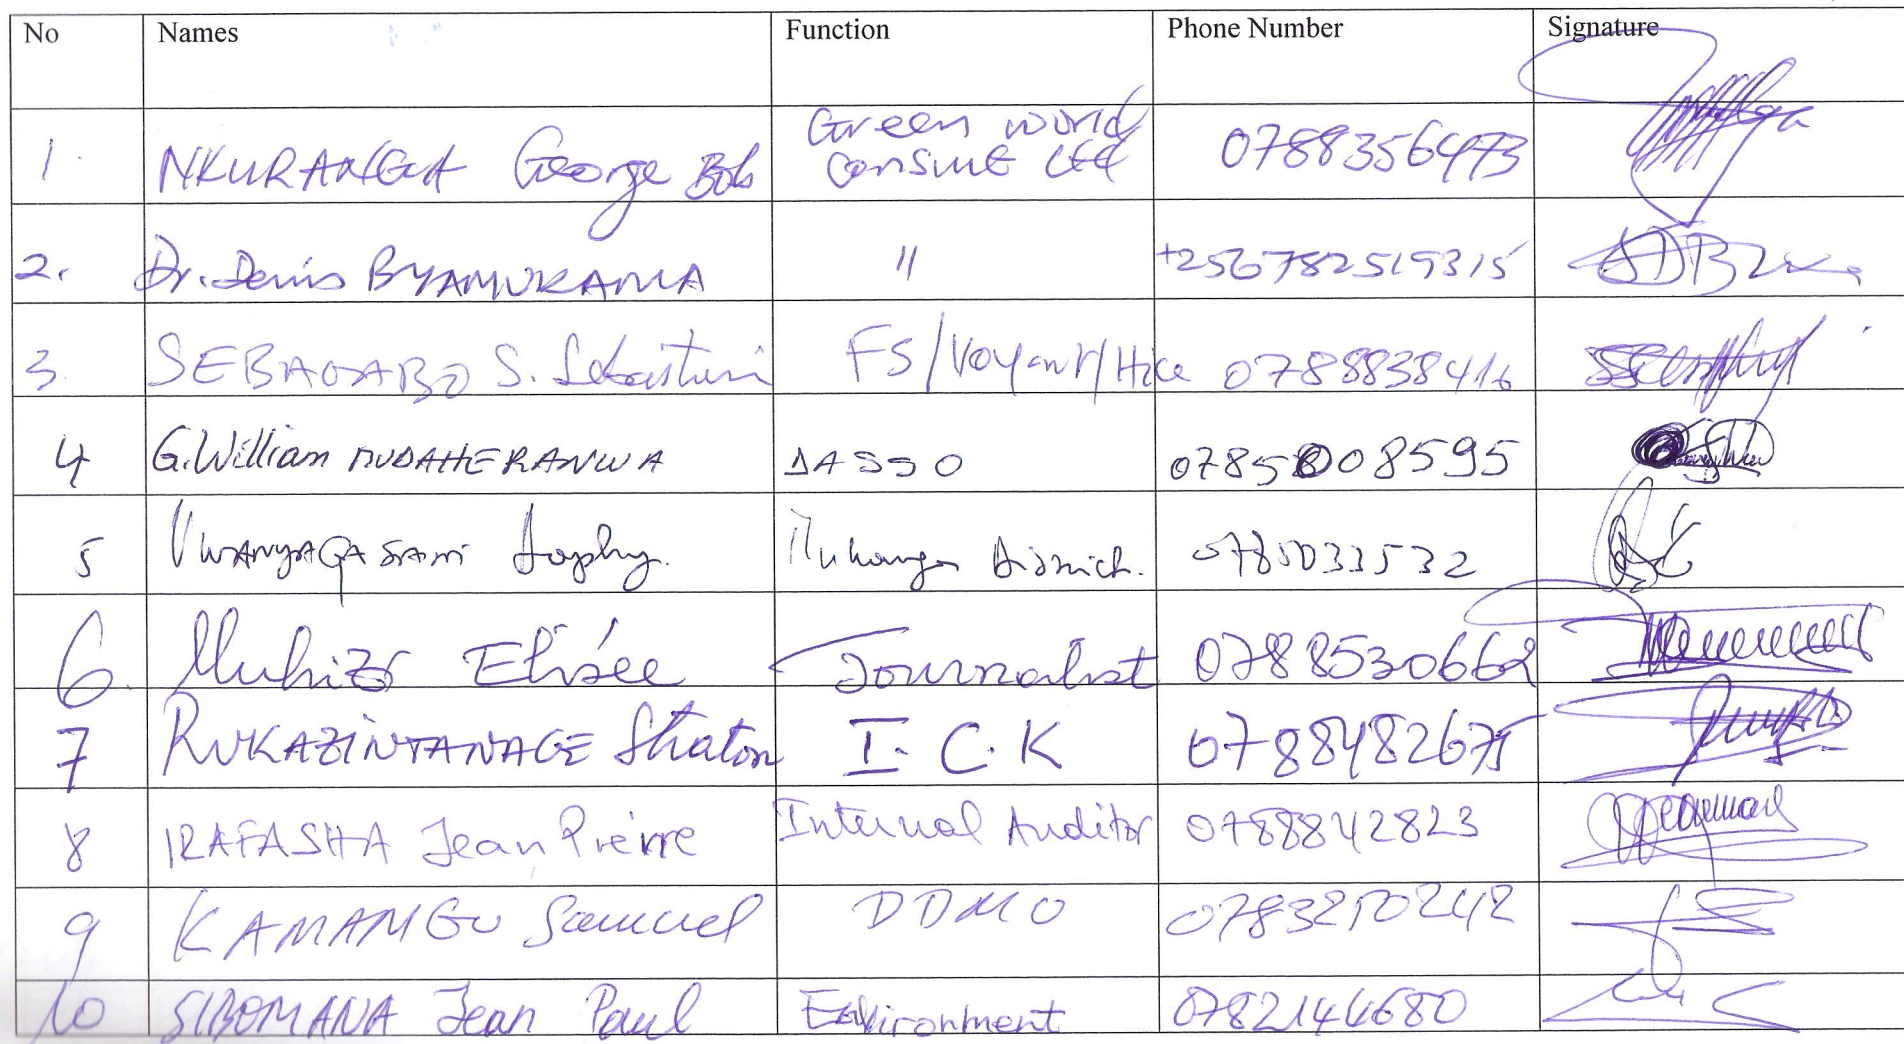 No Names Function Phone Number Signature
1. NKURANGA George Bob Green world consult Ltd 0788356473
2. Dr. Denis BYAMUKAMA " +256782519315
3. SEBAGABO S. Sebastien FS/Voyant/Hice 0788838416
4 G. William MUDAHERANWA DASSO 0785808595
5 UWANYAGASANI Muhanga District. 0785033532
6. Muhizi Elisée Journalist 0788530662
7 RUKAZINTANAGE Straton I.C.K 0788482675
8 IRAFASHA Jean Pierre Internal Auditor 0788842823
9 KAMANGU Samuel DDMO 0783250242
10 SIBOMANA Jean Paul Environment 0782144680